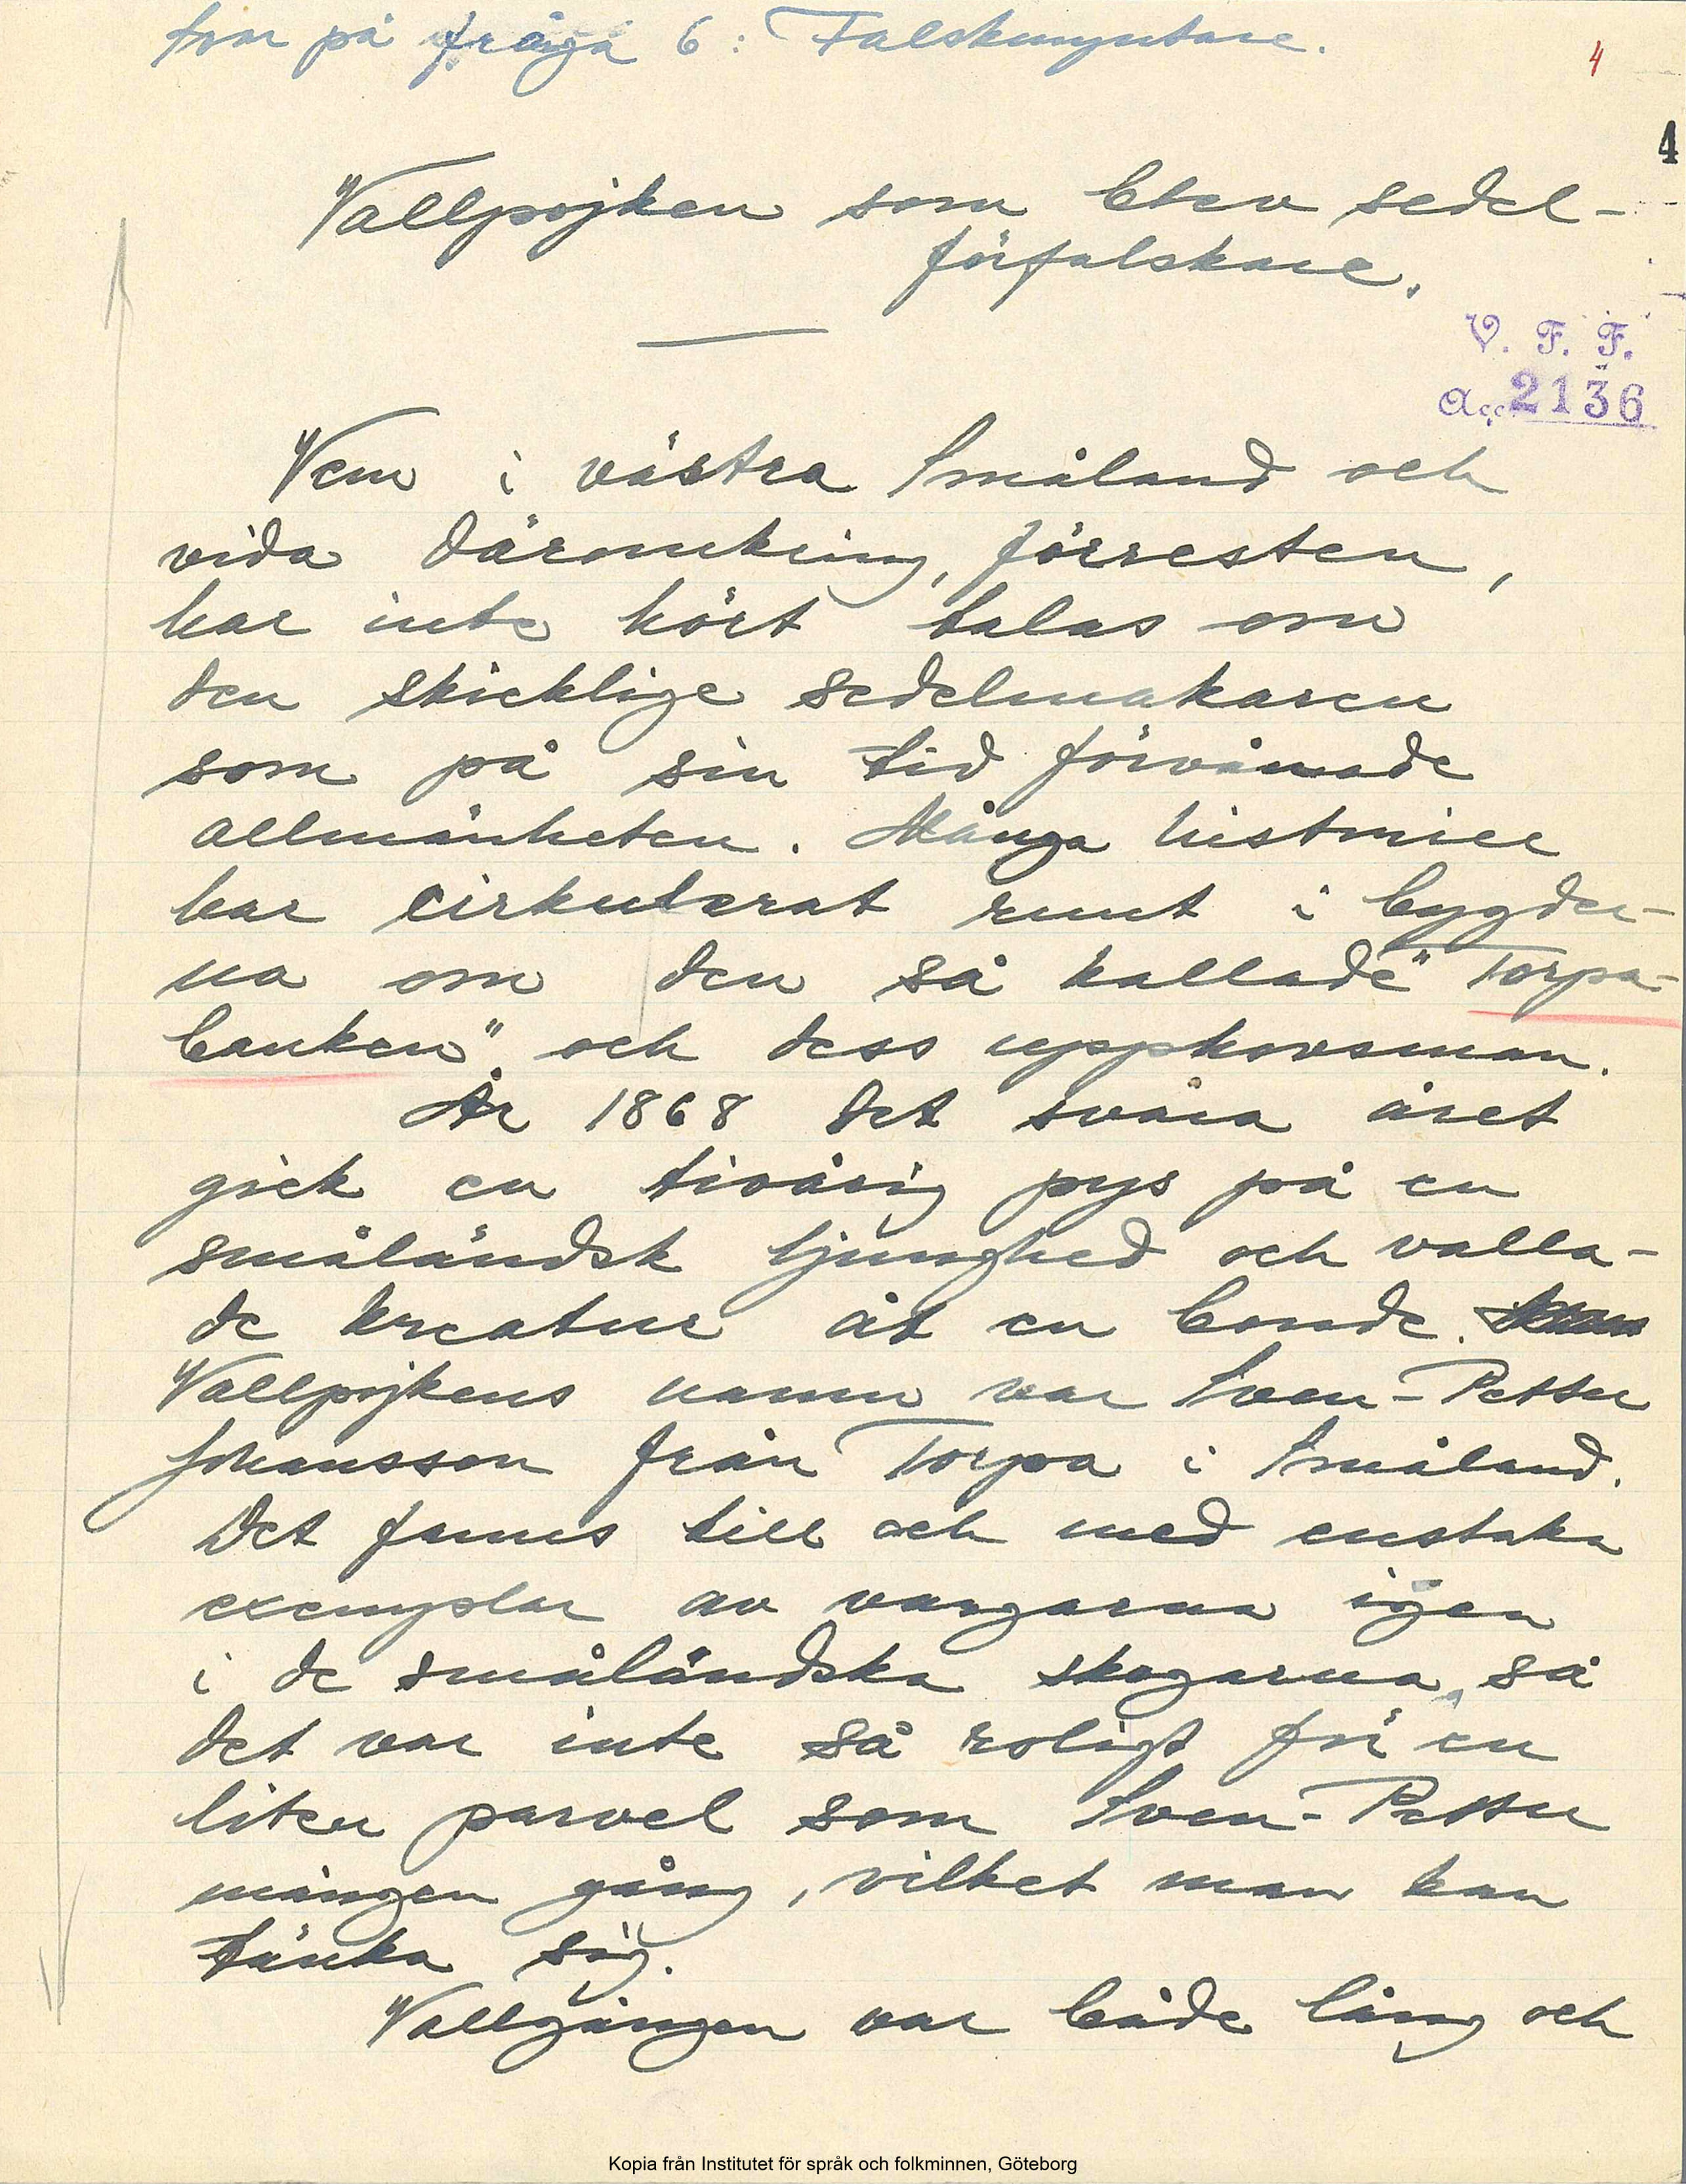 Svar på fråga 6: Falskmyntare.
4
4
Vallpojken som blev sedel-
förfalskare.
V. F. F.
Acc. 2136
Vem i västra Småland och
vida däromkring, förresten,
har inte hört talas om
den skicklige sedelmakaren
som på sin tid förvånade
allmänheten. Många historier
har cirkulerat runt i bygder-
na om den så kallade "Torpa-
banken" och dess upphovsman.
År 1868 det svåra året
gick en tioårig pys på en
småländsk ljunghed och valla-
de kreatur åt en bonde.
Vallpojkens namn var Sven-Petter
Johansson från Torpa i Småland.
Det fanns till och med enstaka
exemplar av vargarna igen
i de småländska skogarna, så
det var inte så roligt för en
liten parvel som Sven-Petter
mången gång, vilket man kan
tänka sig.
Vallgången var både lång och
Kopia från Institutet för språk och folkminnen, Göteborg